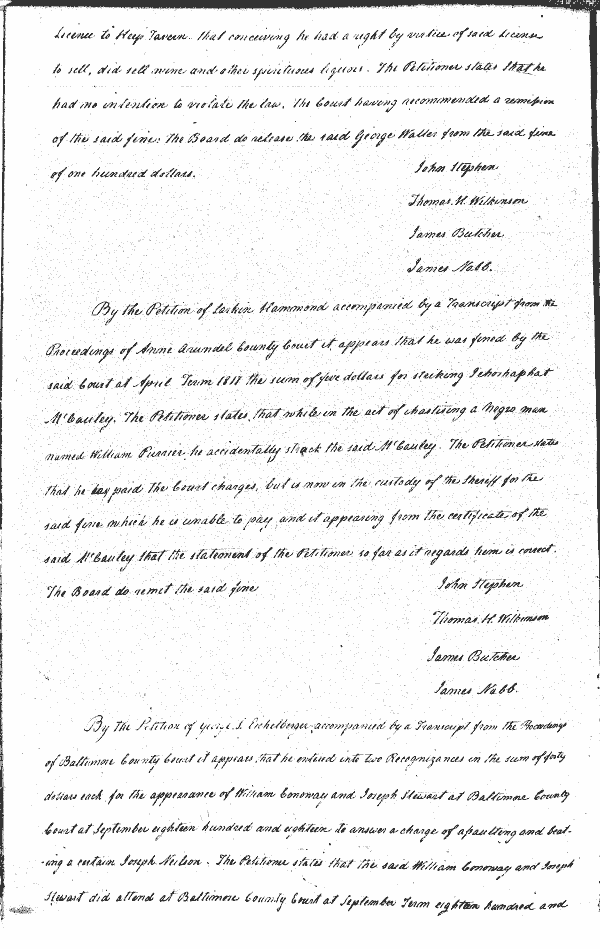 Licence to Keep Tavern. that conceiving he had a right by virtue of said Licence
to sell, did sell wine and other spirituous liquors. The Petitioner states that he
had no intention to violate the law. The Court having recommended a remission
of the said fine: The Board do release the said George Waller from the said fine
of one hundred dollars.
John Stephen
Thomas H. Wilkinson
James Butcher
James Nabb.
By the Petition of Larkin Hammond accompanied by a Transcript from the
Proceedings of Anne Arundel County Court it appears that he was fined by the
said Court at April Term 1818 the sum of five dollars for striking Jehoshaphat
McCauley. The Petitioner states, that while in the act of chastising a Negro man
named William Purrier he accidentally struck the said McCauley. The Petitioner states
that he has paid the Court charges, but is now in the custody of the Sheriff for the
said fine which he is unable to pay and it appearing from the certificate of the
said McCauley that the statement of the Petitioner so far as it regards him is correct.
The Board do remit the said fine
John Stephen
Thomas H. Wilkinson
James Butcher
James Nabb.
By the Petition of George S. Eichelberger accompanied by a Transcript from the Proceedings
of Baltimore County Court it appears, that he entered into two Recognizances in the sum of forty
dollars each for the appearance of William Conoway and Joseph Stewart at Baltimore County
Court at September eighteen hundred and eighteen to answer a charge of assaulting and beat-
-ing a certain Joseph Neilson. The Petitioner states that the said William Conoway and Joseph
Stewart did attend at Baltimore County Court at September Term eighteen hundred and